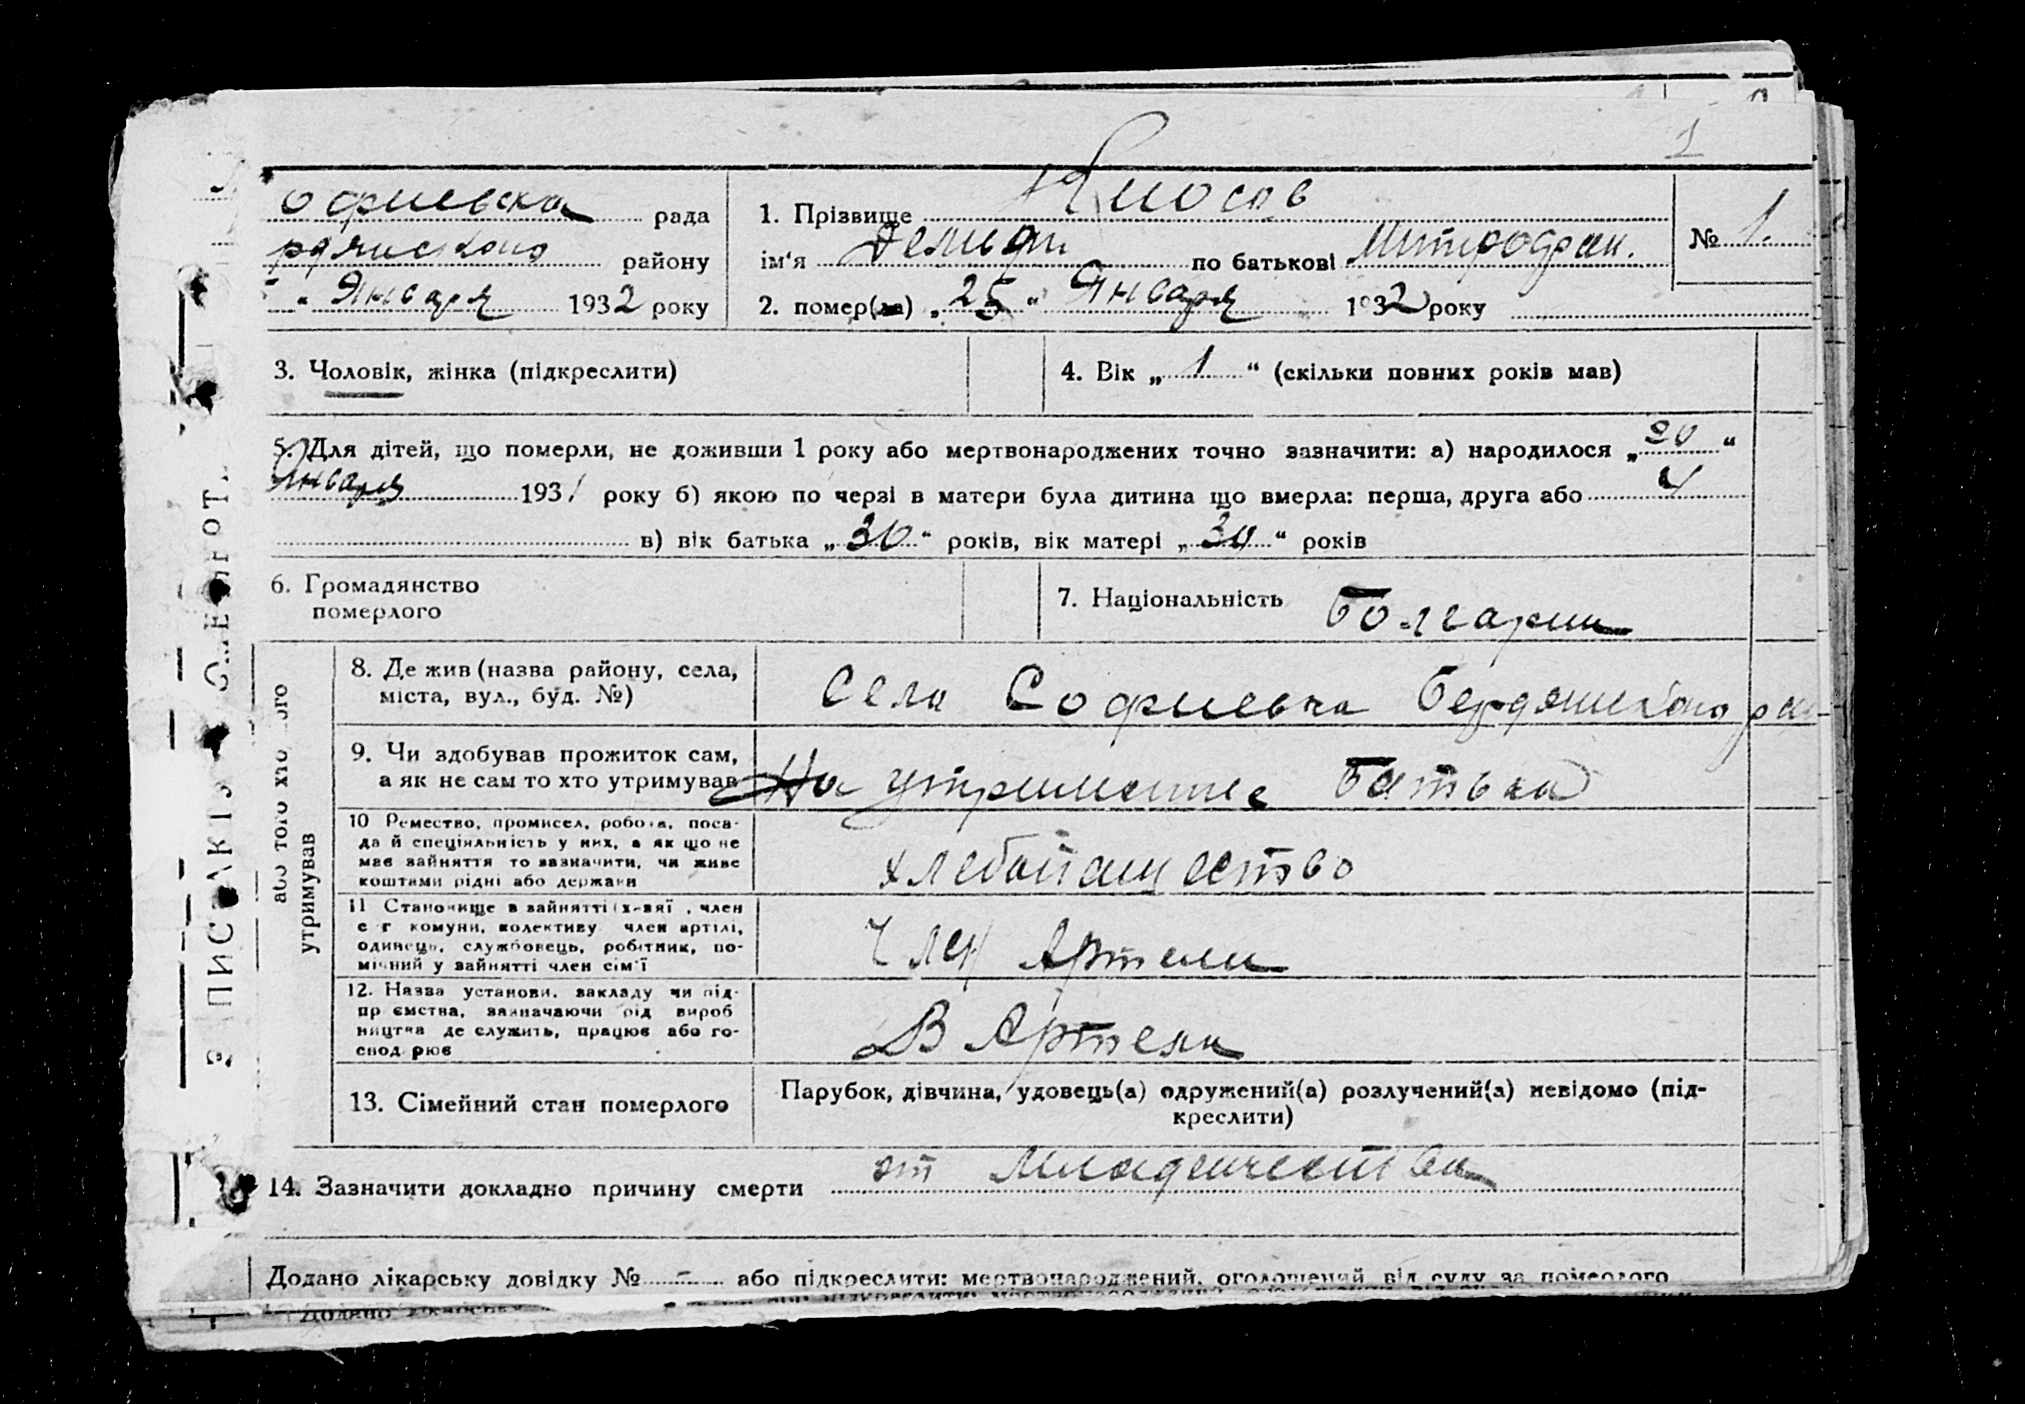 1
офиевска рада
рдянского району
" Января 1932 року
1. Прізвище Кюосов
ім'я Демьян по батькові Митрофан.
№ 1.
2. помер(ла) „ 25 " Января 1932 року
3. Чоловік, жінка (підкреслити)
4. Вік „ 1 " (скільки повних років мав)
5. Для дітей, що померли, не доживши 1 року або мертвонароджених точно зазначити: а) народилося „ 20 "
Января 1931 року б) якою по черзі в матери була дитина що вмерла: перша, друга або 4
в) вік батька „ 30 " років, вік матері „ 30 " років
6. Громадянство
померлого
7. Національність Болгарин
8. Де жив (назва району, села,
міста, вул., буд. №)
Село Софиевка Бердянского рай
9. Чи здобував прожиток сам,
а як не сам то хто утримував
На утримание Батька
10 Ремество, промисел, робота, поса-
да й спеціяльність у них, а як що не
має зайняття то зазначити, чи живе
коштами рідні або держави
хлебопашество
11 Становище в зайнятті (х-вяї , член
с г комуни, колективу член артілі,
одинець, службовець, робітник, по-
мічний у зайнятті член сім'ї
Член Артели
12. Назва установи, закладу чи під-
пр ємства, зазначаючи рід вироб
ництва де служить, працює або го-
сподарює
В Артели
або того хто його
утримував
13. Сімейний стан померлого
Парубок, дівчина, удовець(а) одружений(а) розлучений(а) невідомо (під-
креслити)
14. Зазначити докладно причину смерти от младенчества
Додано лікарську довідку № - або підкреслити: мертвонароджений, оголошений від суду за померлого